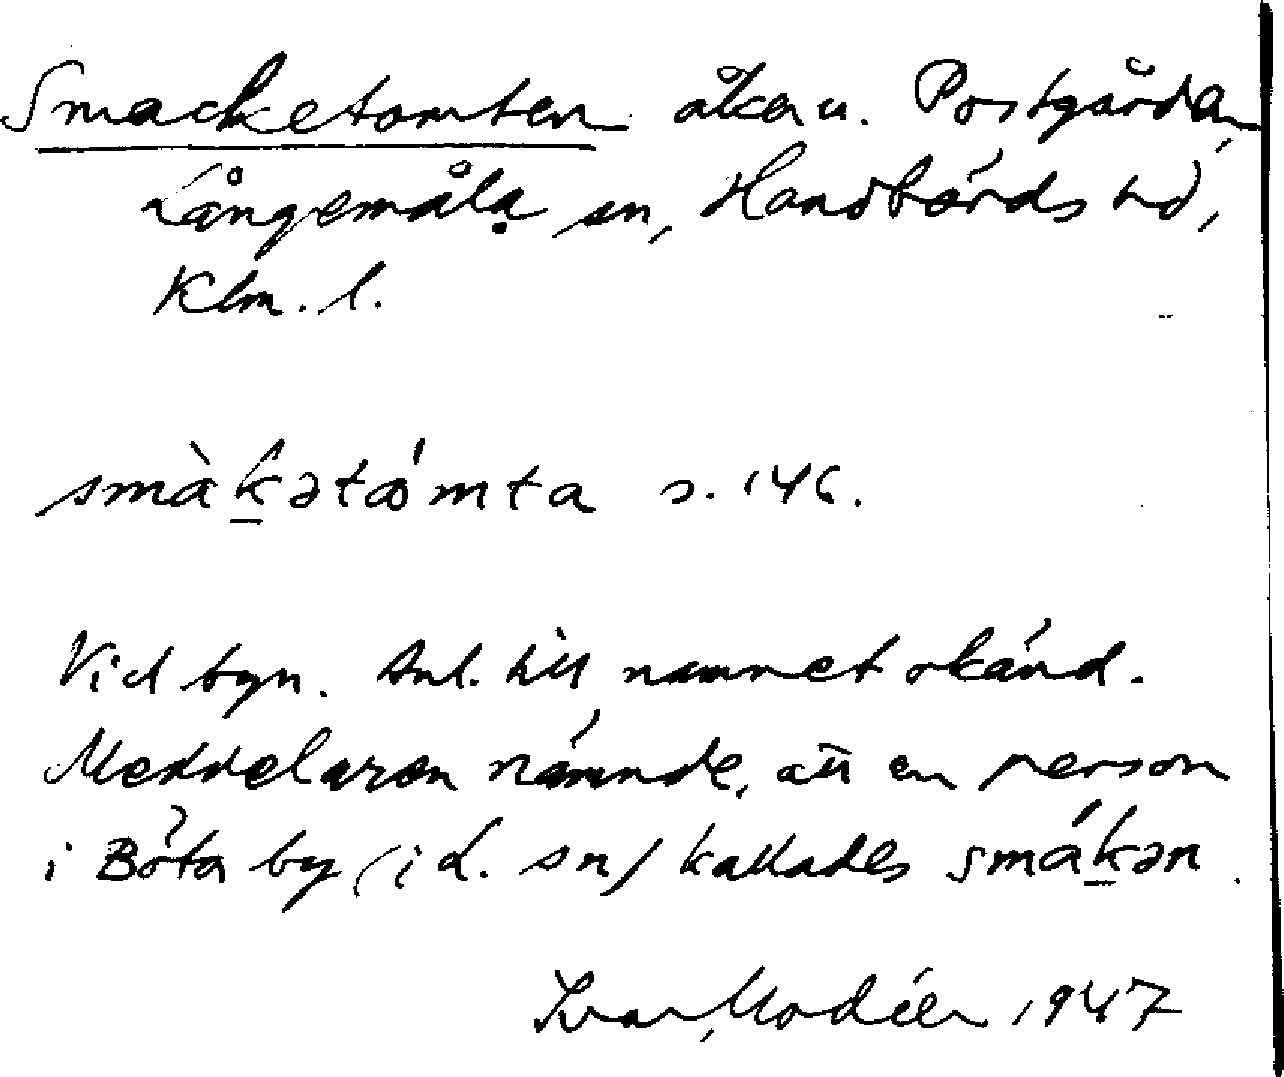 Smacketomten åker u. Postgården,
Långemåla sn, Handbörds hd,
Klm. l.
smàk̲ətǻmta s. 146.
Vid byn. Anl. till namnet okänd.
Meddelaren nämnde, att en person
i Böta by (i L. sn) kallades smák̲ən.
Ivar Modéer 1947